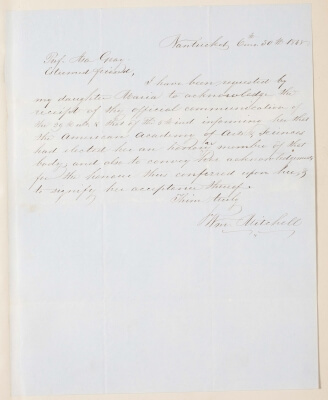 Nantucket, 6mo 20th 1848
Prof. Asa Gray
Esteemed friend,
I have been requested by
my daughter Maria to acknowledge the
receipt of the official communication of
the 29th ult. & that of the inst informing her that
the American Academy of Arts & Sciences
had elected her an honorary member of that
body, and also to convey her acknowledgments
for the honour thus conferred upon her, &
to signify her acceptance thereof.
Thine truly
Wm Mitchell